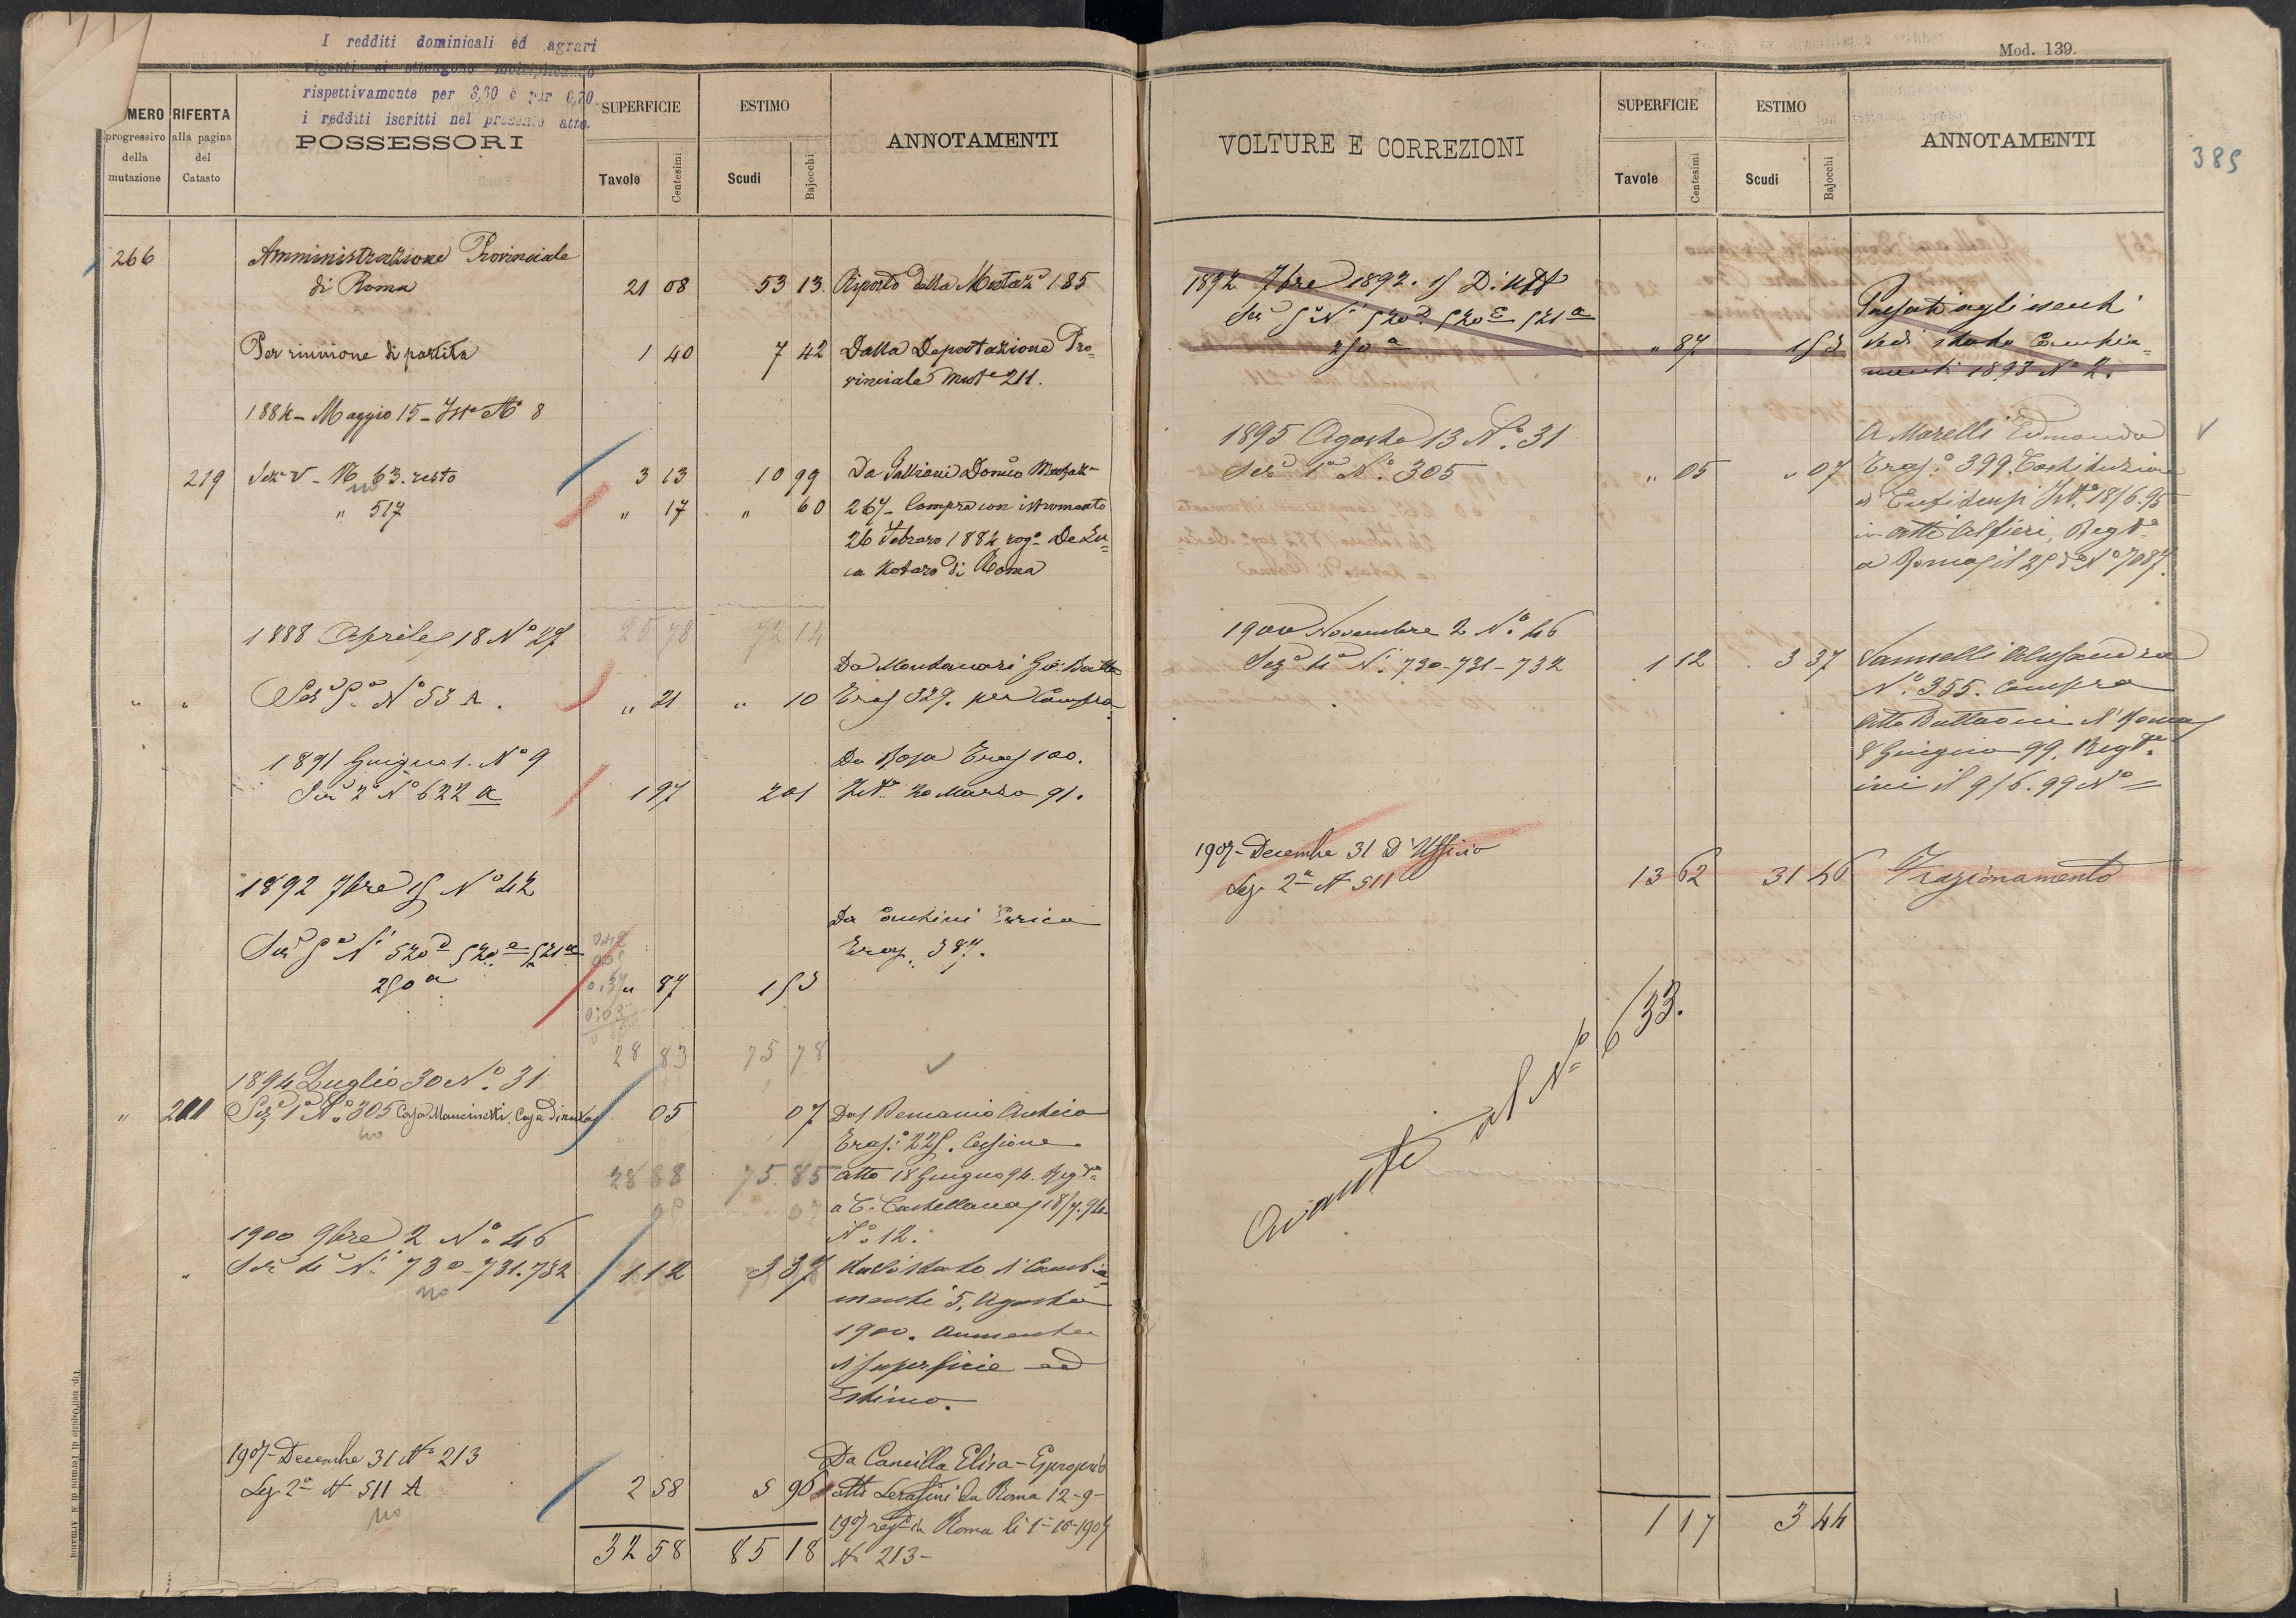 I redditi dominicali ed agrari
vigenti si ottengono moltiplicando
rispettivamente per 3,30 e per 0,70
i redditi iscritti nel presente atto.
MERO progressivo della mutazione
RIFERTA alla pagina del Catasto
POSSESSORI
SUPERFICIE
Tavole Centesimi
ESTIMO
Scudi Bajocchi
ANNOTAMENTI
266 Amministrazione Provinciale
di Roma 21 08 53 13 Riporto dalla Mutaz. 185
Per riunione di partita 1 40 7 42 Dalla Deputazione Pro=
vinciale Mut. 211.
1884 - Maggio 15 - N° 8
219 Sez. V - N° 63. resto 3 13 10 99 Da Galliani Dom.co
no
" 517 " 17 " 60 267 - Compra con istromento
26 Febraro 1882 rog. De Lu=
ca Notaro di Roma
25 78 72 14
1888 Aprile 18 N° 27
Da Montanari Gio: Batta
" " Sez. 5a N° 53 A. " 21 " 10 329. per Compra
1891 Giugno 1. N° 9 Da Rosa 100.
Sez. 2a N° 622 a 1 97 2 01 20 Marzo 91.
1892 7bre 15 N° 42
Da Enrico
Sez. 5a Ni 520 d 520 e 521 a 387.
250 a " 87 1 53
28 83 75 78
1894 Luglio 30 N°. 31
" 201 Sez. 1a N° 305 Casa Mancinetti. Casa diruta 05 07 Dal Demanio Antico
no
225. Cessione
28 88 75 85 atto 18 Giugno 94. Reg.to
05 07 a C. Castellana 18/7. 94
N° 12.
1900 9bre 2 N° 46
" Sez. 4a Ni 730 - 731. 732 1 12 3 37 Dallo stato di Cambia=
no
menti 5. Agosto
1900. Aumento
di superficie ed
Estimo.
1907 - Decembre 31 N° 213 Da Cancilla Elisa - Esproprio
Sez. 2a N° 511 A 2 58 5 96 atto Serafini in Roma 12-9-
no
1907 reg. in Roma li 1-10-1907
32 58 85 18 N° 213 -
Mod. 139.
VOLTURE E CORREZIONI
SUPERFICIE
Tavole Centesimi
ESTIMO
Scudi Bajocchi
ANNOTAMENTI
385
1892 7bre 1892. 15 D'Uff.
Sez. 5a Ni 520 d 520 e 521 a
250 a " 87 1 53
Passati agli
Vedi stato Cambia=
menti 1893 N° 2.
1895 Agosto 13 N°. 31
Sez. 1a N°. 305 " 05 " 07
A Morelli Edmondo
399. Costituzione
di Enfiteusi 18/6.95
in atti Alfieri, Reg.to
a Roma il 25 d° N° 7087.
1900 Novembre 2 N°. 46
Sez. 4a Ni. 730 - 731 - 732 1 12 3 37
Alessandra
N°. 355. Compra
Atto Buttaoni di Roma
8 Giugno 99. Reg.to
ivi il 9/6.99 N° =
1907 - Decembre 31 D'Ufficio
Sez. 2a N° 511 13 62 31 46 Frazionamento
Avanti al N° 633.
1 17 3 44